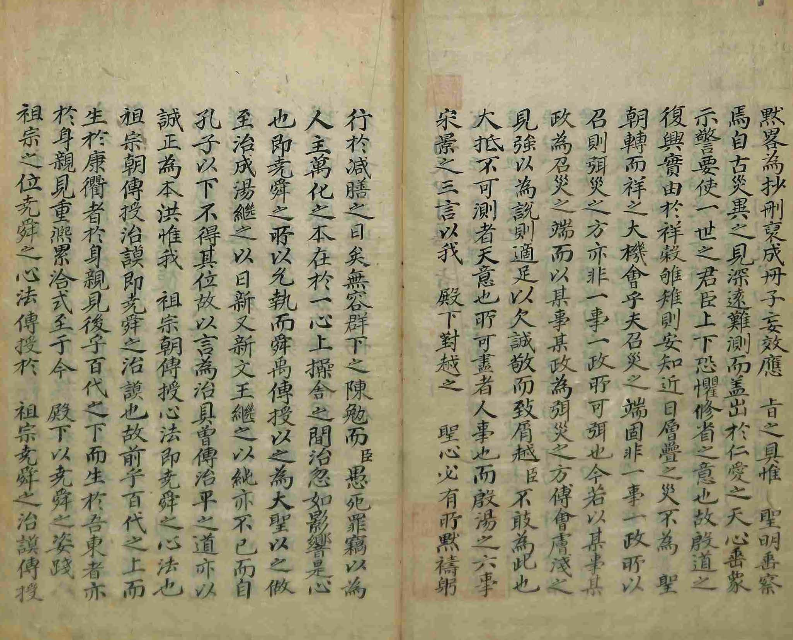 黙畧為抄刪裒成冊子妄效應 旨之具惟 聖明垂察
焉自古災異之見深遠難測而盖出於仁愛之天心垂象
示警要使一世之君臣上下恐懼修省之意也故殷道之
復興實由於祥穀雊雉則安知近日層疊之災不為 聖
朝轉而祥之大機會乎夫召災之端固非一事一政所以
召則弭災之方亦非一事一政所可弭也今若以某事某
政為召災之端而以某事某政為弭災之方傅會膚淺之
見強以為說則適足以欠誠敬而致屑越臣不敢為此也
大抵不可測者天意也所可盡者人事也而殷湯之六事
宋景之三言以我 殿下對越之 聖心必有所黙禱躬
行於减膳之日矣無容群下之陳勉而臣愚死罪竊以為
人主萬化之本在於一心上操舍之間治忽如影響是心
也即堯舜之所以允執而舜禹傳授以之為大聖以之做
至治成湯繼之以日新又新文王繼之以純亦不已而自
孔子以下不得其位故以言為治具曽傳治平之道亦以
誠正為本洪惟我 祖宗朝傳授心法即堯舜之心法也
祖宗朝傳授治謨即堯舜之治謨也故前乎百代之上而
生於康衢者於身親見後乎百代之下而生於吾東者亦
於身親見重熈累洽式至于今 殿下以堯舜之姿踐
祖宗之位堯舜之心法傳授於 祖宗堯舜之治謨傳授